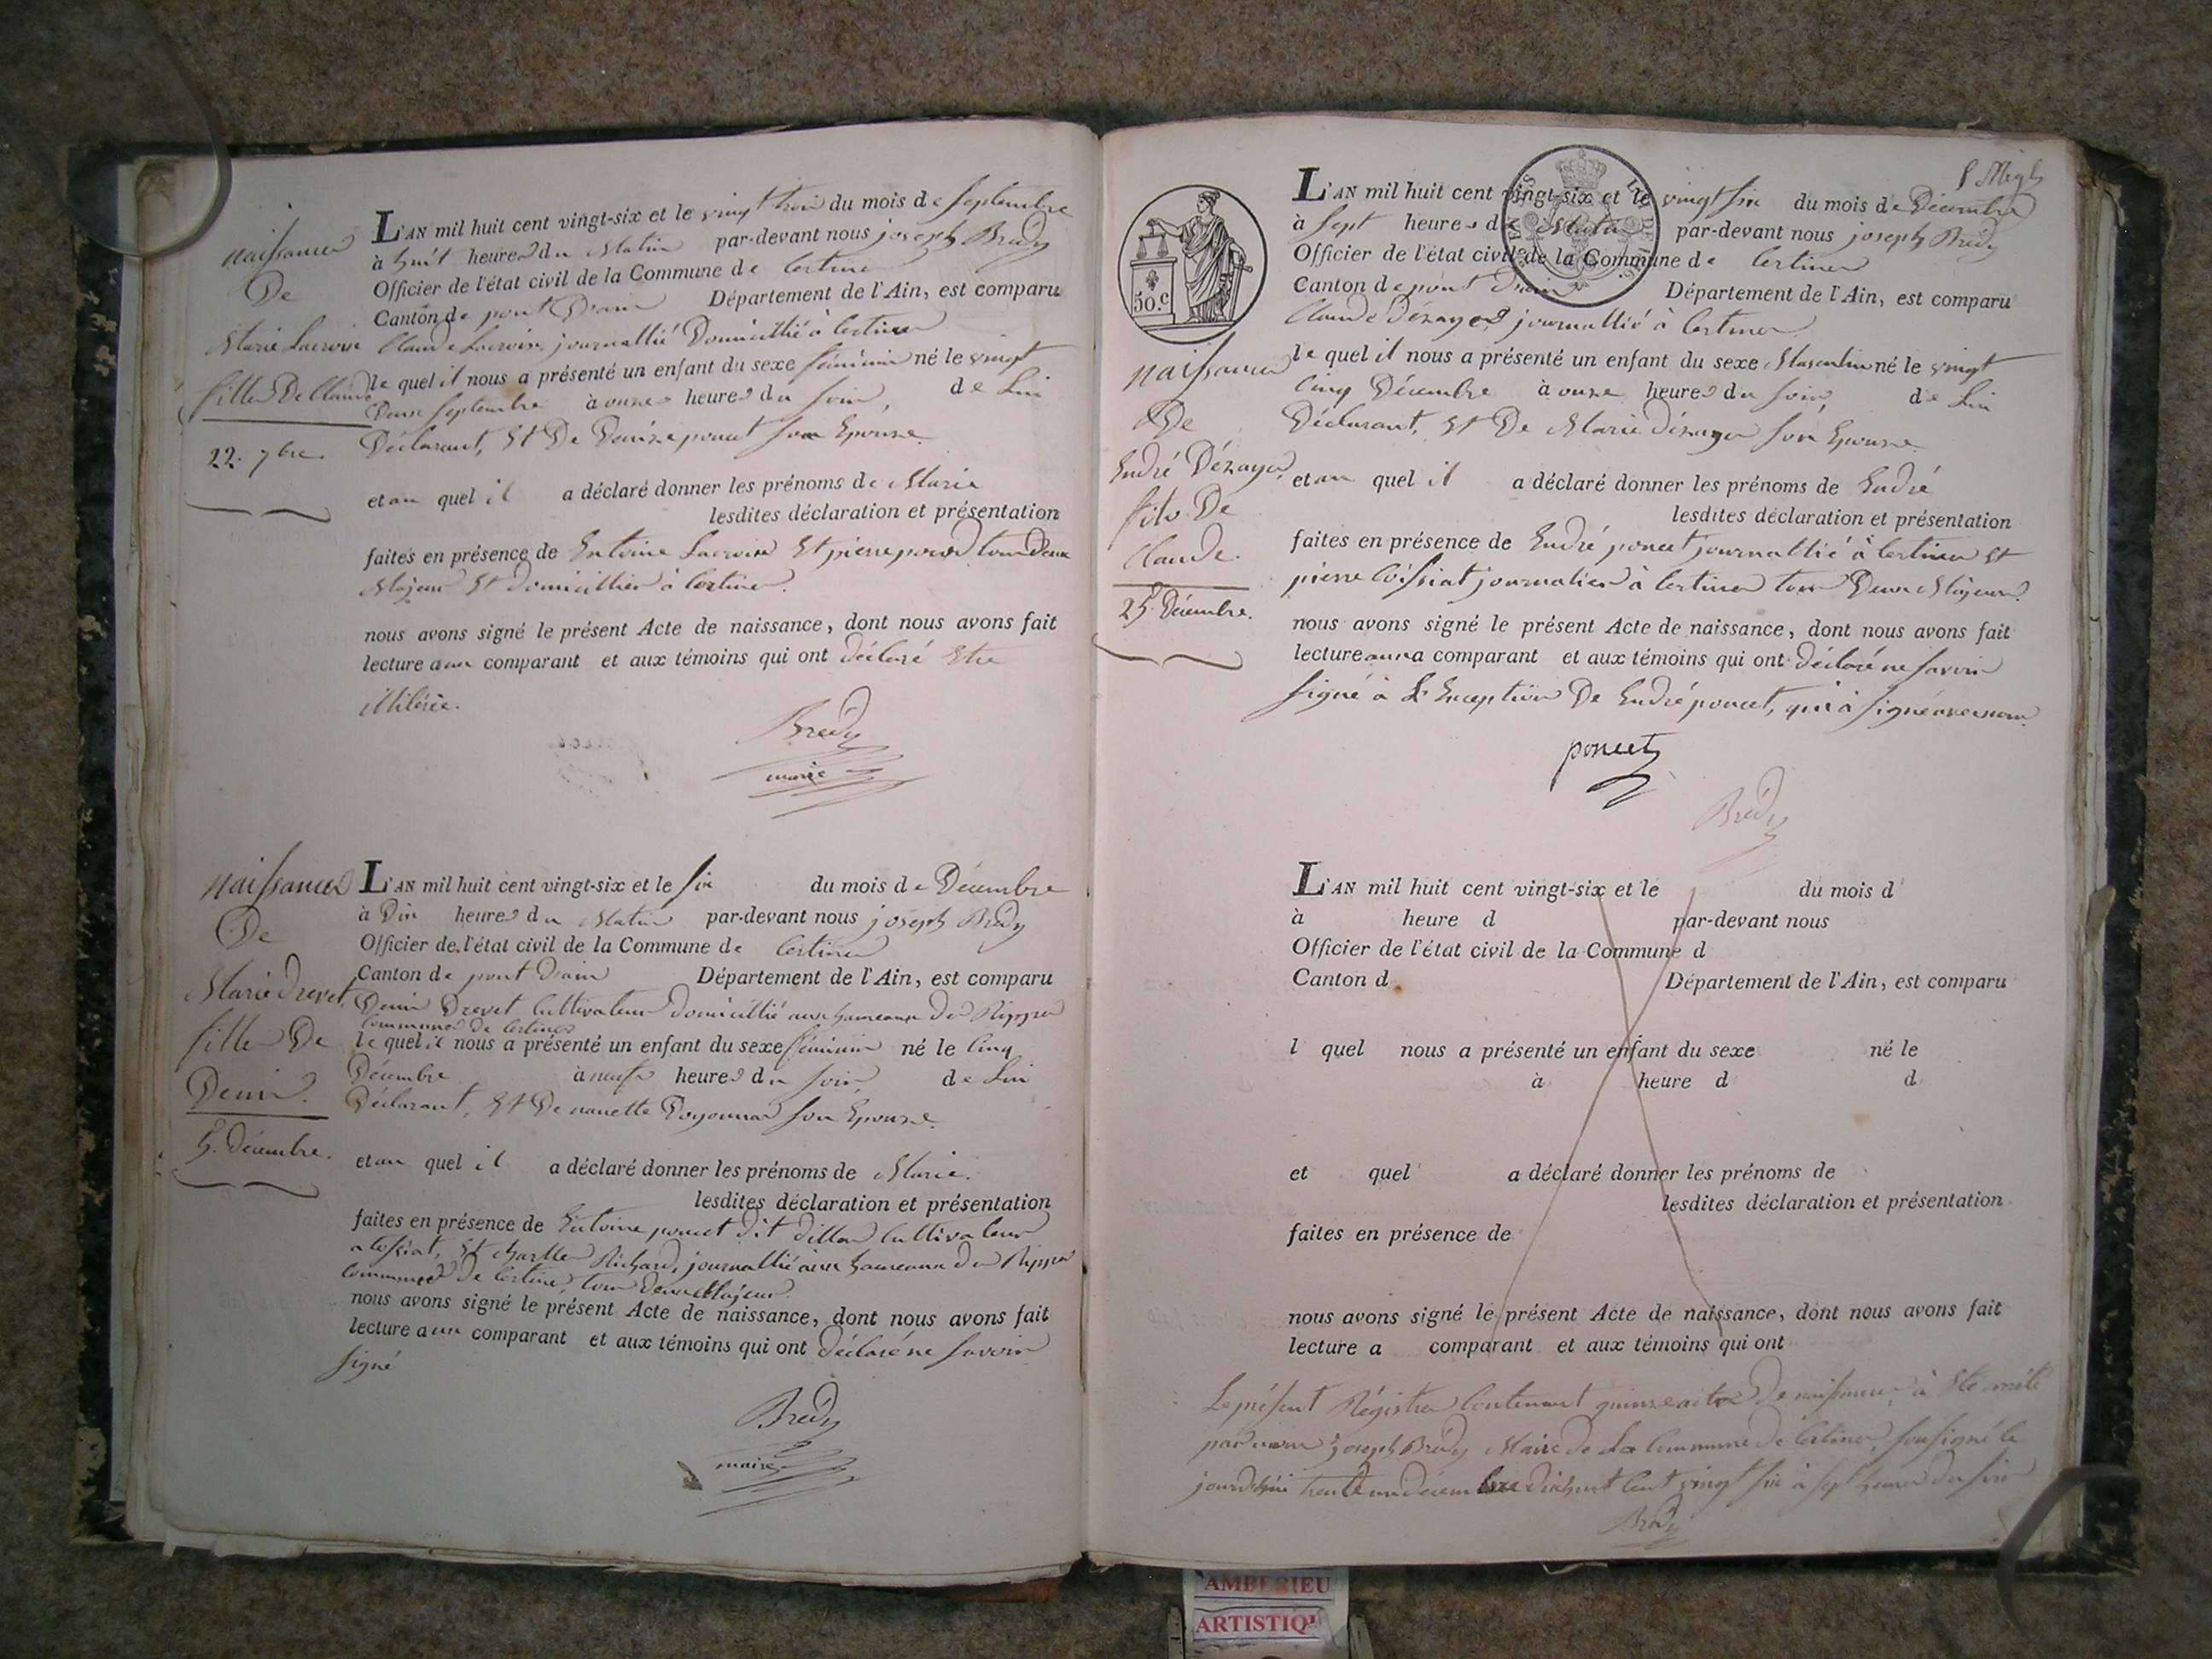 naissance
De
Marie Lacroix
fille De Claude
22. 7bre.
L'AN mil huit cent vingt-six et le vingt trois du mois de septembre
à huit heures du Matin par-devant nous joseph Brédy
Officier de l'état civil de la Commune de Certines
Canton de pont Dain Département de l'Ain, est comparu
Claude Lacroix journallié Domicillié à Certines
le quel il nous a présenté un enfant du sexe féminin né le vingt
Deux septembre à onze heures du soir, de Lui
Déclarant, Et De Denize poncet son Epouse.
et au quel il a déclaré donner les prénoms de Marie
lesdites déclaration et présentation
faites en présence de Entoine Lacroix Et pierre tous Deux
Majeur Et domicilliés à Certines.
nous avons signé le présent Acte de naissance, dont nous avons fait
lecture aux comparant et aux témoins qui ont déclaré Etre
illiterée.
Bredy
maire
naissance
De
Marie Drevet,
fille De
Denis.
5. Décembre.
L'AN mil huit cent vingt-six et le six du mois de Décembre
à Dix heures du Matin par-devant nous joseph Brédy
Officier de l'état civil de la Commune de Certines
Canton de pont Dain Département de l'Ain, est comparu
Denis Drevet Cultivateur domicillié aux hameaux De Rippes
Commune de Certines
le quel il nous a présenté un enfant du sexe féminin né le Cinq
Décembre à neufs heures du soir, de Lui
Déclarant, Et De nanette Poyonnar son Epouse.
et au quel il a déclaré donner les prénoms de Marie.
lesdites déclaration et présentation
faites en présence de Entoine poncet dit dillon Cultivateur
a Cossiat, Et charlles Richard, journallié aux hameaux De Rippes
Commune De Certines, tous deux Majeur.
nous avons signé le présent Acte de naissance, dont nous avons fait
lecture aux comparant et aux témoins qui ont déclaré ne savoir
signé
Bredy
maire
8 
50.c
naissance
De
Endré Dézayes,
fils De
Claude.
25. Décembre.
L'AN mil huit cent vingt-six et le vingt six du mois de Décembre
à sept heures du Matin par-devant nous joseph Brédy
Officier de l'état civil de la Commune de Certines
Canton de pont Dain Département de l'Ain, est comparu
Claude Dézayes journallié à Certines
le quel il nous a présenté un enfant du sexe Masculin né le vingt
Cinq Décembre à onze heures du soir, de Lui
Déclarant, Et De Marie dézayes son Epouse.
et au quel il a déclaré donner les prénoms de Endré
lesdites déclaration et présentation
faites en présence de Endré poncet journallié à Certines Et
pierre Coissiat journalier à Certines tous Deux Majeurs.
nous avons signé le présent Acte de naissance, dont nous avons fait
lecture aux comparant et aux témoins qui ont déclaré ne savoir
signé à L'Exception De Endré poncet, qui à signé avec nous.
poncet
Brédy
L'AN mil huit cent vingt-six et le du mois d
à heure d par-devant nous
Officier de l'état civil de la Commune d
Canton d Département de l'Ain, est comparu
l quel nous a présenté un enfant du sexe né le
à heure d d
et quel a déclaré donner les prénoms de
lesdites déclaration et présentation
faites en présence de
nous avons signé le présent Acte de naissance, dont nous avons fait
lecture a comparant et aux témoins qui ont
Le présent Régistre Contenant quinze actes De naissances, à Eté arrêté
par nous joseph Brédy Maire de La Commune de Certines, sousigné le
jourdhui trente un décembre Dixhuit Cent vingt six à sept heures du soir
Brédy
AMBERIEU
ARTISTIQ